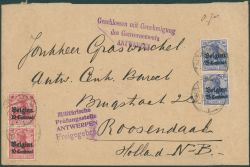 Geschlossen mit Genehmigung
des Gouvernements
ANTWERPEN
Jonkheer Gras
Antw. Cent. Bureel
Brugstraat
Roosendaal
Holland N-B
Militärische
Prüfungsstelle
ANTWERPEN
Freigegeben
Belgien
10 Centimes
Belgien
10 Centimes
Belgien
Belgien